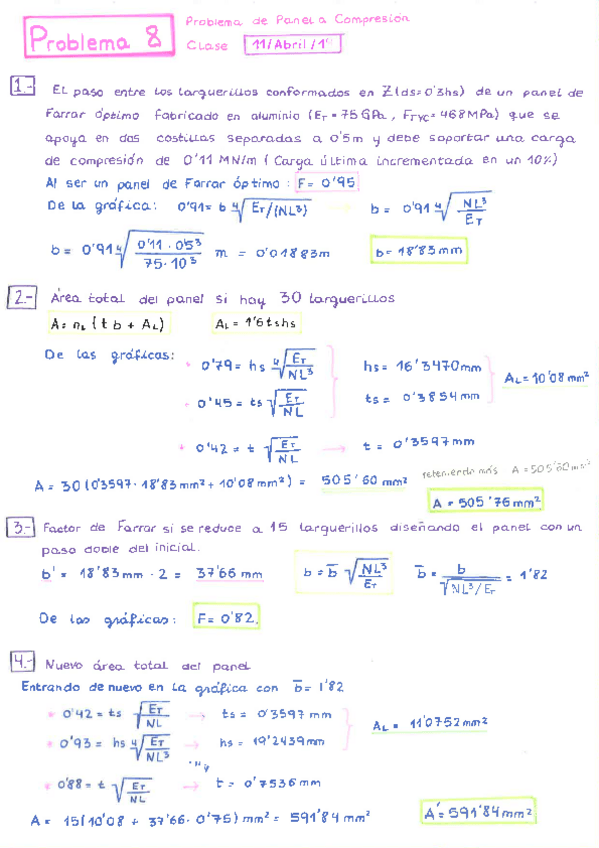 Problema 8
Problema de Panel a Compresión
Clase 11/Abril/1
1.- El paso entre los larguerillos conformados en Z (ds=0'3hs) de un panel de
Farrar óptimo fabricado en aluminio (ET=75GPa, FTYC=468MPa) que se
apoya en dos costillas separadas a 0'5m y debe soportar una carga
de compresión de 0'11 MN/m (Carga última incrementada en un 10%)
Al ser un panel de Farrar óptimo: F= 0'95
De la gráfica: 0'91= b ∜ET/(NL³) b= 0'91 ∜NL³/ET
b= 0'91 ∜0'11·0'5³/75·10³ m = 0'01883m b= 18'83mm
2.- Área total del panel si hay 30 larguerillos
A= nL (t b + AL) AL= 1'6tshs
De las gráficas: * 0'79= hs ∜ET/NL³ hs= 16'3470mm
* 0'45= ts √ET/NL ts= 0'3854mm AL=10'08mm²
* 0'42= t √ET/NL → t= 0'3597mm
A= 30(0'3597·18'83mm²+10'08mm²) = 505'60 mm² reteniendo más A=505'60mm²
A= 505'76mm²
3.- Factor de Farrar si se reduce a 15 larguerillos diseñando el panel con un
paso doble del inicial.
b'= 18'83mm·2 = 37'66 mm b= b̄ ∜NL³/ET b̄= b/∜NL³/ET = 1'82
De las gráficas: F= 0'82.
4.- Nuevo área total del panel
Entrando de nuevo en la gráfica con b̄= 1'82
* 0'42= ts √ET/NL → ts= 0'3597mm
* 0'93= hs ∜ET/NL³ → hs= 19'2439mm AL= 11'0752mm²
* 0'88= t √ET/NL → t= 0'7536mm
A= 15(10'08 + 37'66·0'75)mm²= 591'84mm² A'= 591'84mm²